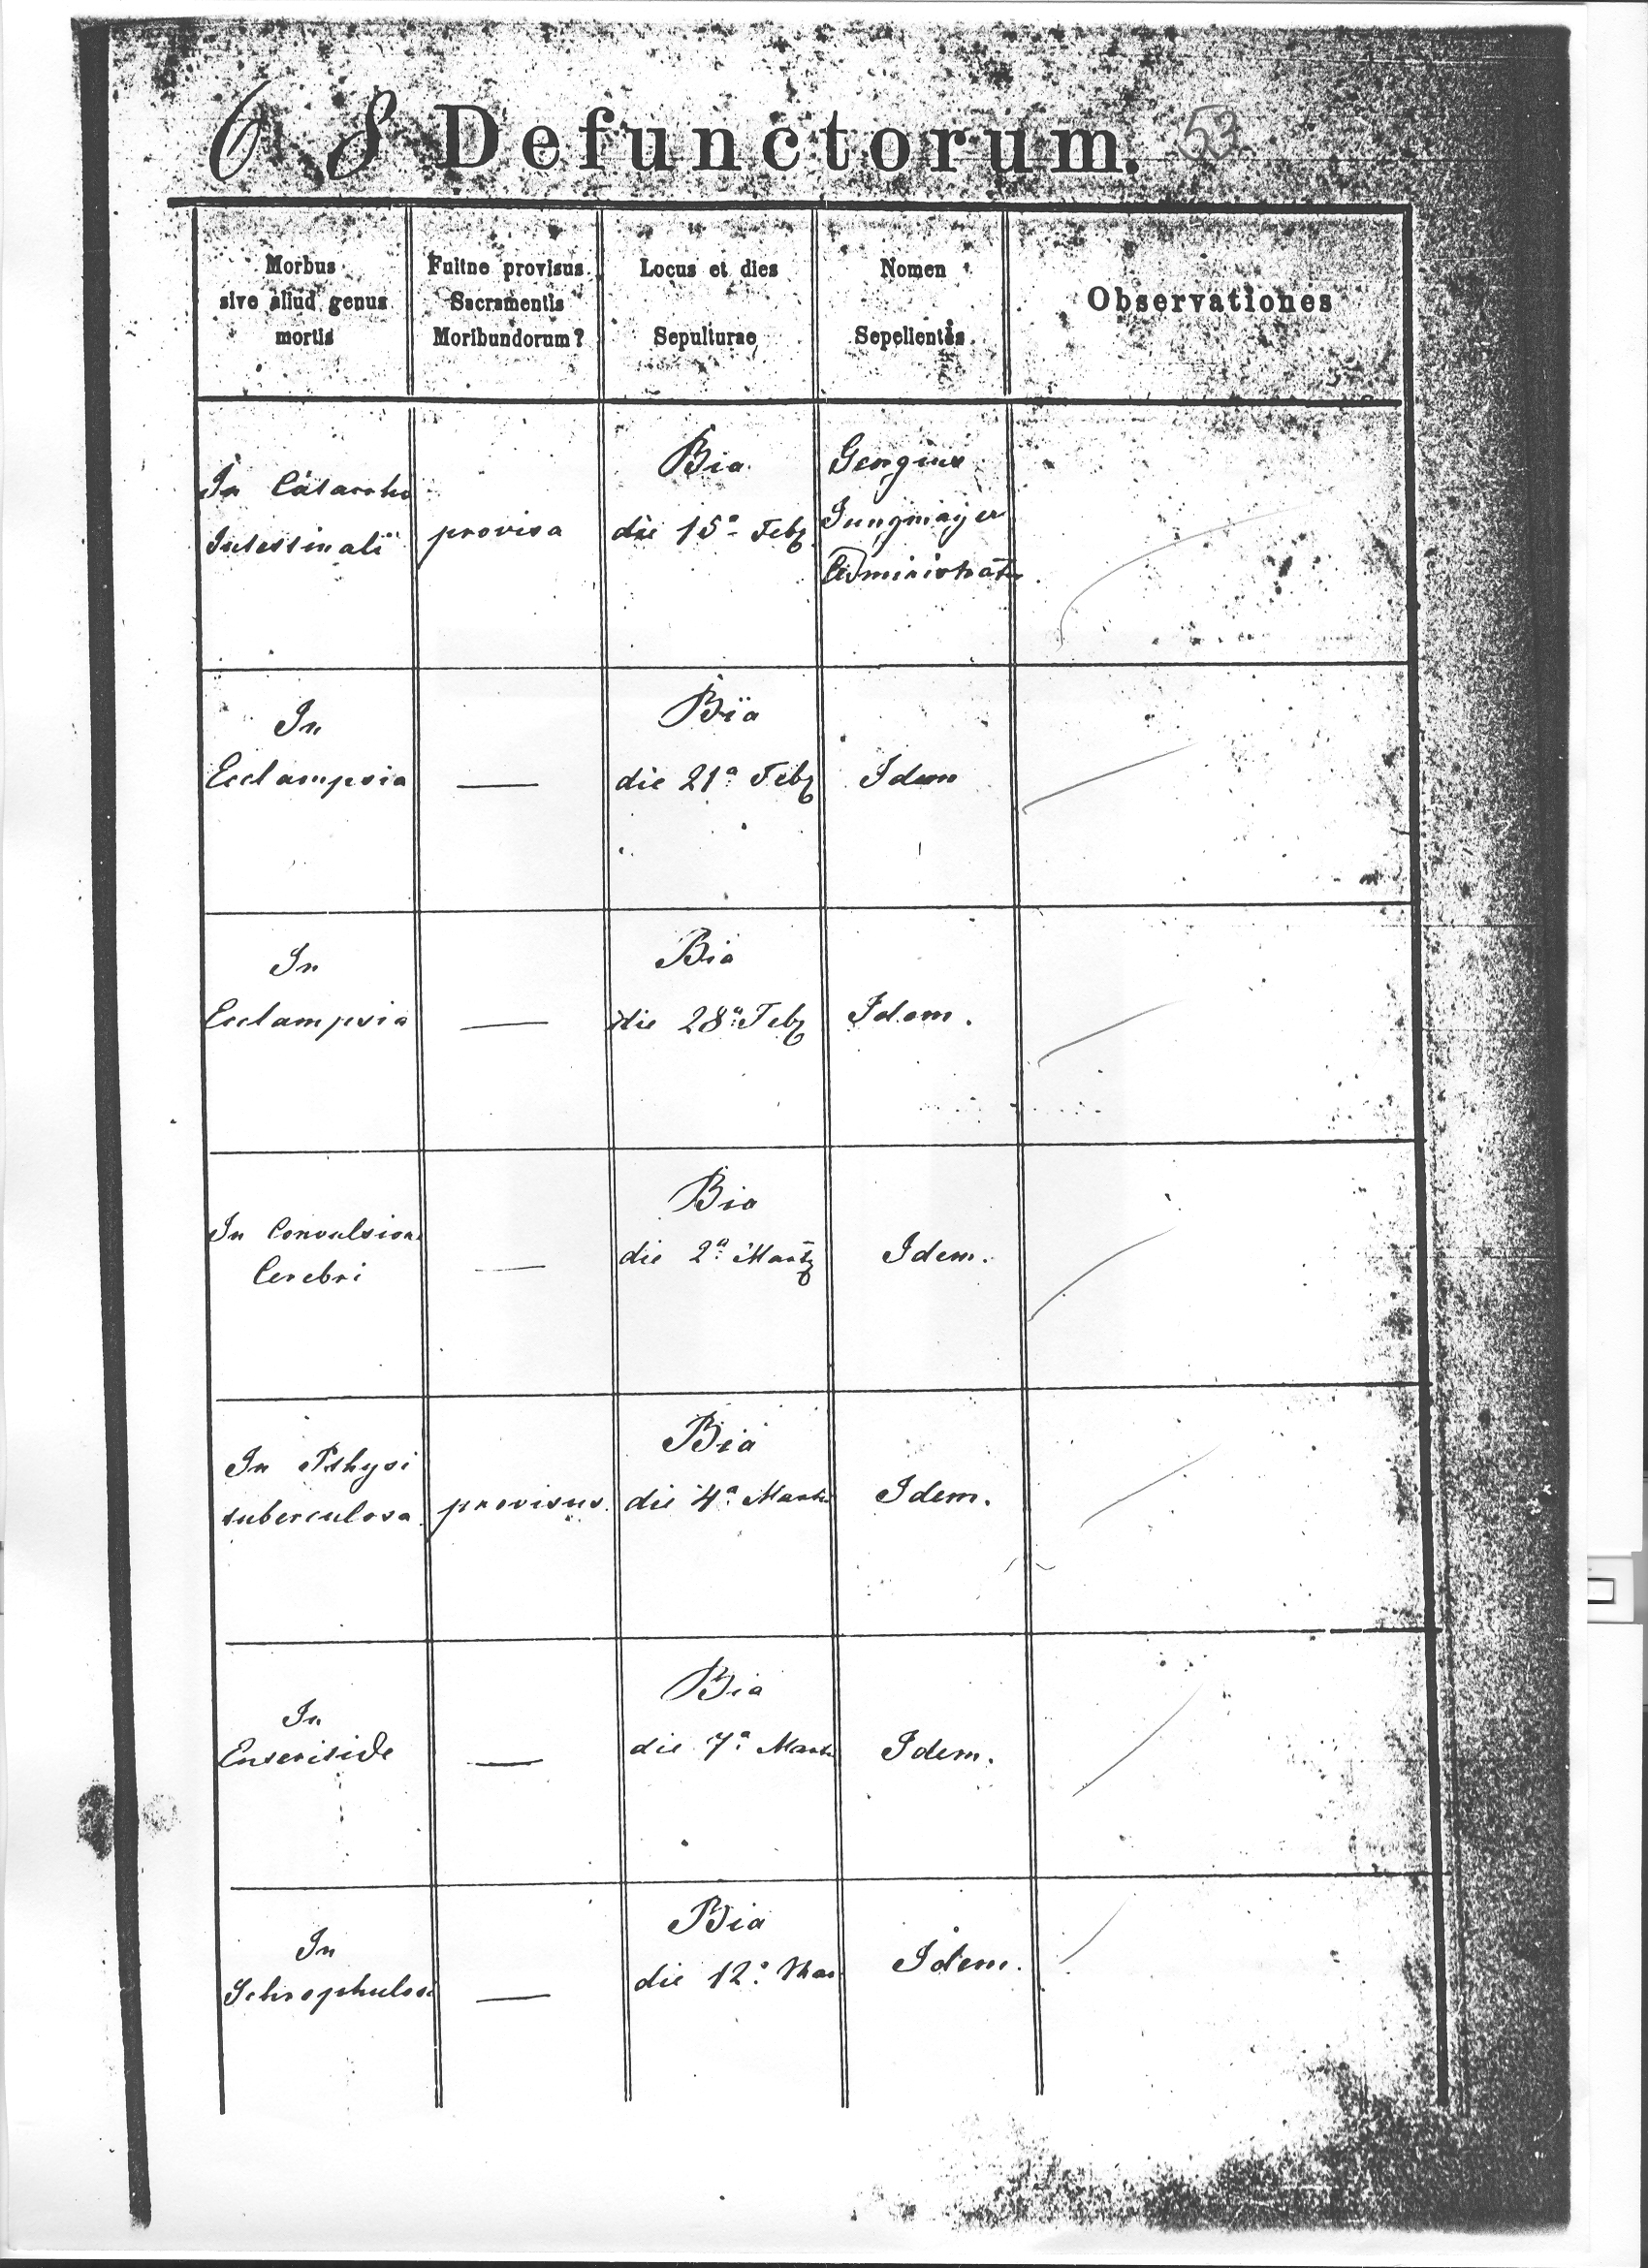 68 Defunctorum. 53
Morbus
sive aliud genus
mortis
Fuitne provisus
Sacramentis
Moribundorum?
Locus et dies
Sepulturae
Nomen
Sepelientis.
Observationes
In Catarrho
Intestinali
provisa
Bia
die 15a Feb
Georgius
Jungmayer
Administrat
In
Ecclampsia
—
Bia
die 21a Feb
Idem
In
Ecclampsia
—
Bia
die 28a Feb
Idem.
In Convulsion
Cerebri
—
Bia
die 2a Marty
Idem.
In Pthysi
tuberculosa
provisus.
Bia
die 4a Marti
Idem.
In
Enteritide
—
Bia
die 7a Marti
Idem.
In
Schrophulosi
—
Bia
die 12a Mar
Idem.